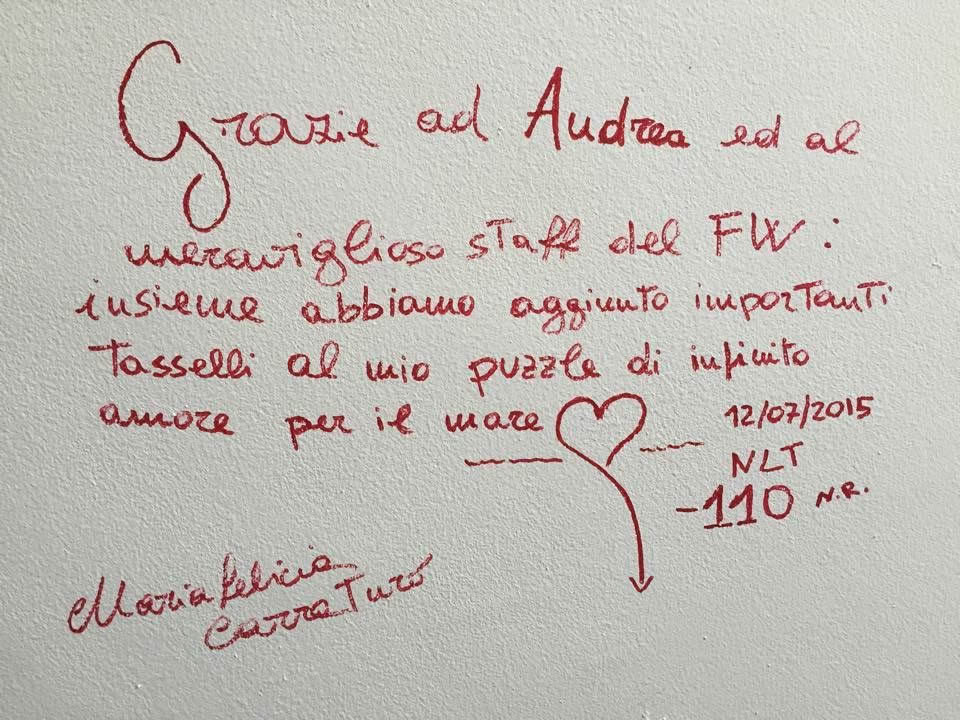 Grazie ad Andrea ed al
meraviglioso staff del FW:
insieme abbiamo aggiunto importanti
tasselli al mio puzzle di infinito
amore per il mare
12/07/2015
NLT
-110 N.R.
Mariafelicia
Carraturo